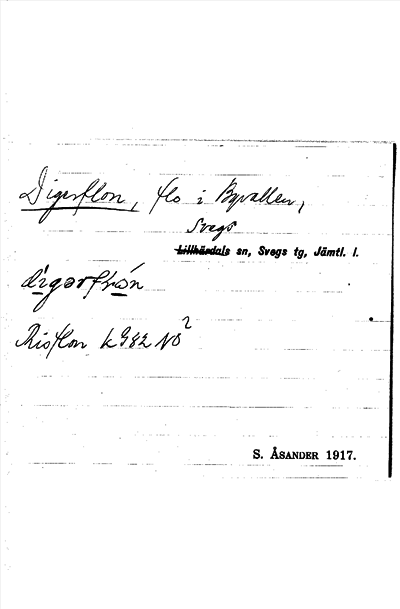 Digerflon, flo i Byvallen,
Svegs
Lillhärdals sn, Svegs tg, Jämtl. l.
Risflon k 982 NO²
S. ÅSANDER 1917.